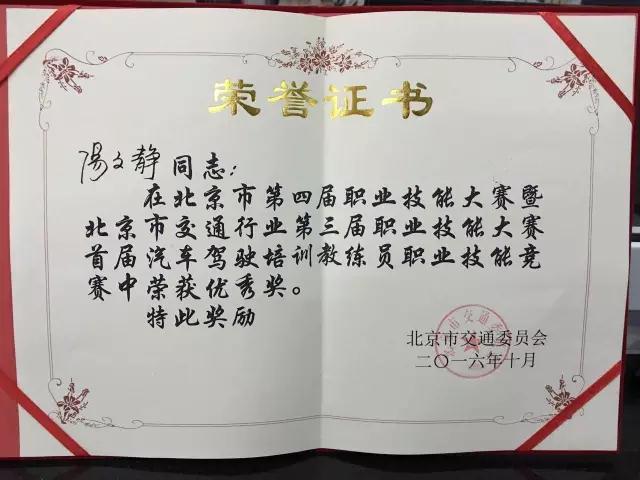 荣誉证书
陽文静 同志：
在北京市第四届职业技能大赛暨
北京市交通行业第三届职业技能大赛
首届汽车驾驶培训教练员职业技能竞
赛中荣获优秀奖。
特此奖励
北京市交通委员会
二〇一六年十月
北京市交通委员会